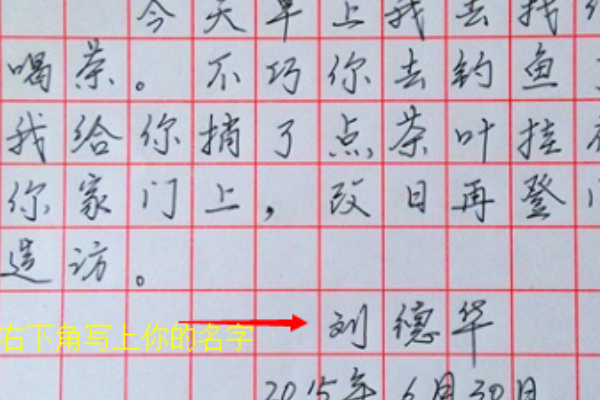 今天早上我去找
喝茶。不巧你去钓鱼
我给你捎了点茶叶挂
你家门上，改日再登门
造访。
刘德华
右下角写上你的名字
2015年6月30日